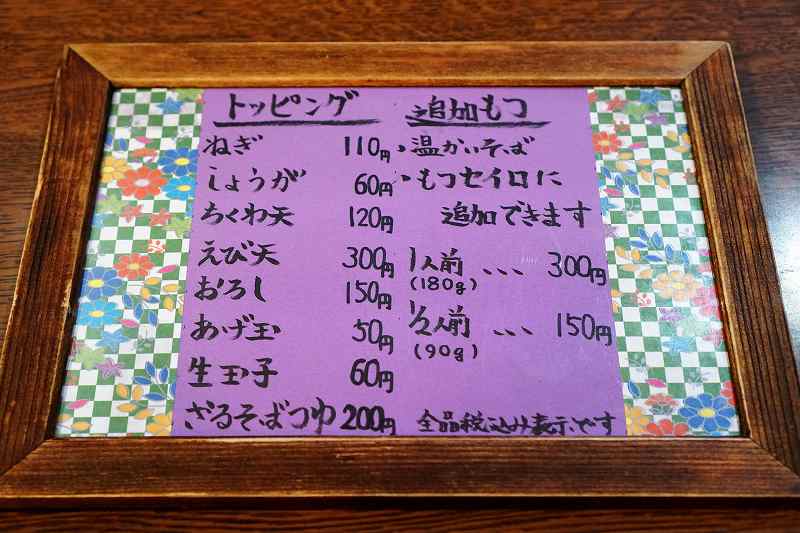 トッピング
ねぎ 110円
しょうが 60円
ちくわ天 120円
えび天 300円
おろし 150円
あげ玉 50円
生玉子 60円
ざるそばつゆ 200円
追加もつ
・温かいそば
・もつセイロに
追加できます
1人前 ... 300円
(180g)
1/2人前 ... 150円
(90g)
全品税込み表示です